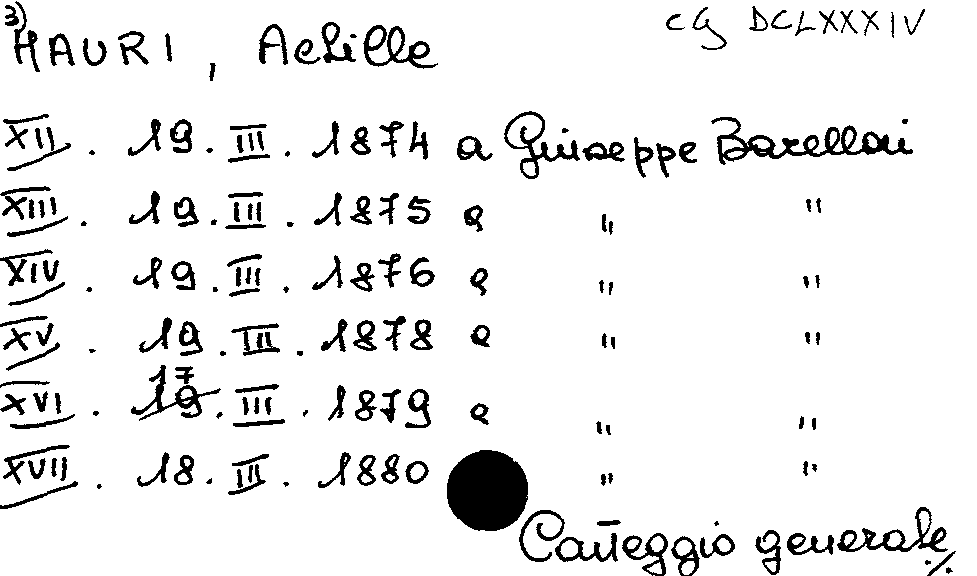 3)
MAURI, Achille
CG DCLXXXIV
XII. 19. III. 1874 a Giuseppe Barellai
XIII. 19. III. 1875 a " "
XIV. 19. III. 1876 a " "
XV. 19. III. 1878 a " "
XVI. 17 19. III. 1879 a " "
XVII. 18. III. 1880 " "
Carteggio generale
./.